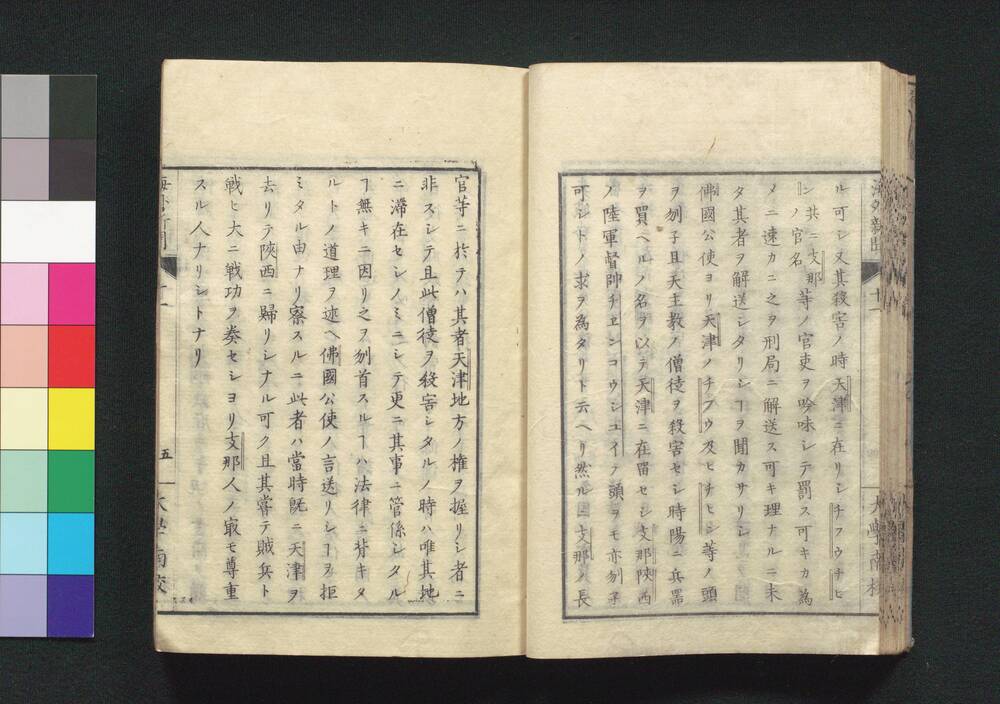 ル可シ又其殺害ノ時天津ニ在リシチフウチヒ
シ共ニ支那ノ官名等ノ官吏ヲ吟味シテ罰ス可キカ為
メニ速カニ之ヲ刑局ニ解送ス可キ理ナルニ未
タ其者ヲ解送シタリシヿヲ聞カサリシ
佛國公使ヨリ天津ノチフウ及ヒチヒシ等ノ頭
ヲ刎子且天主教ノ僧徒ヲ殺害セシ時陽ニ兵器
ヲ買ヘルノ名ヲ以テ天津ニ在畱セシ支那陝西
ノ陸軍督帥チヱンコウシユイノ頭ヲモ亦刎子
可シトノ求ヲ為タリト云ヘリ然ルニ支那ノ長
海外新聞
十二
大學南校
官等ニ於テハ其者天津地方ノ権ヲ握リシ者ニ
非スシテ且此僧徒ヲ殺害シタルノ時ハ唯其地
ニ滞在セシノミニシテ更ニ其事ニ管係シタル
ヿ無キニ因リ之ヲ刎首スルヿハ法律ニ背キタ
ルトノ道理ヲ述ヘ佛國公使ノ言送リシヿヲ拒
ミタル由ナリ察スルニ此者ハ當時既ニ天津ヲ
去リテ陝西ニ歸リシナル可ク且其嘗テ賊兵ト
戦ヒ大ニ戦功ヲ奏セシヨリ支那人ノ㝡モ尊重
スル人ナリシトナリ
五